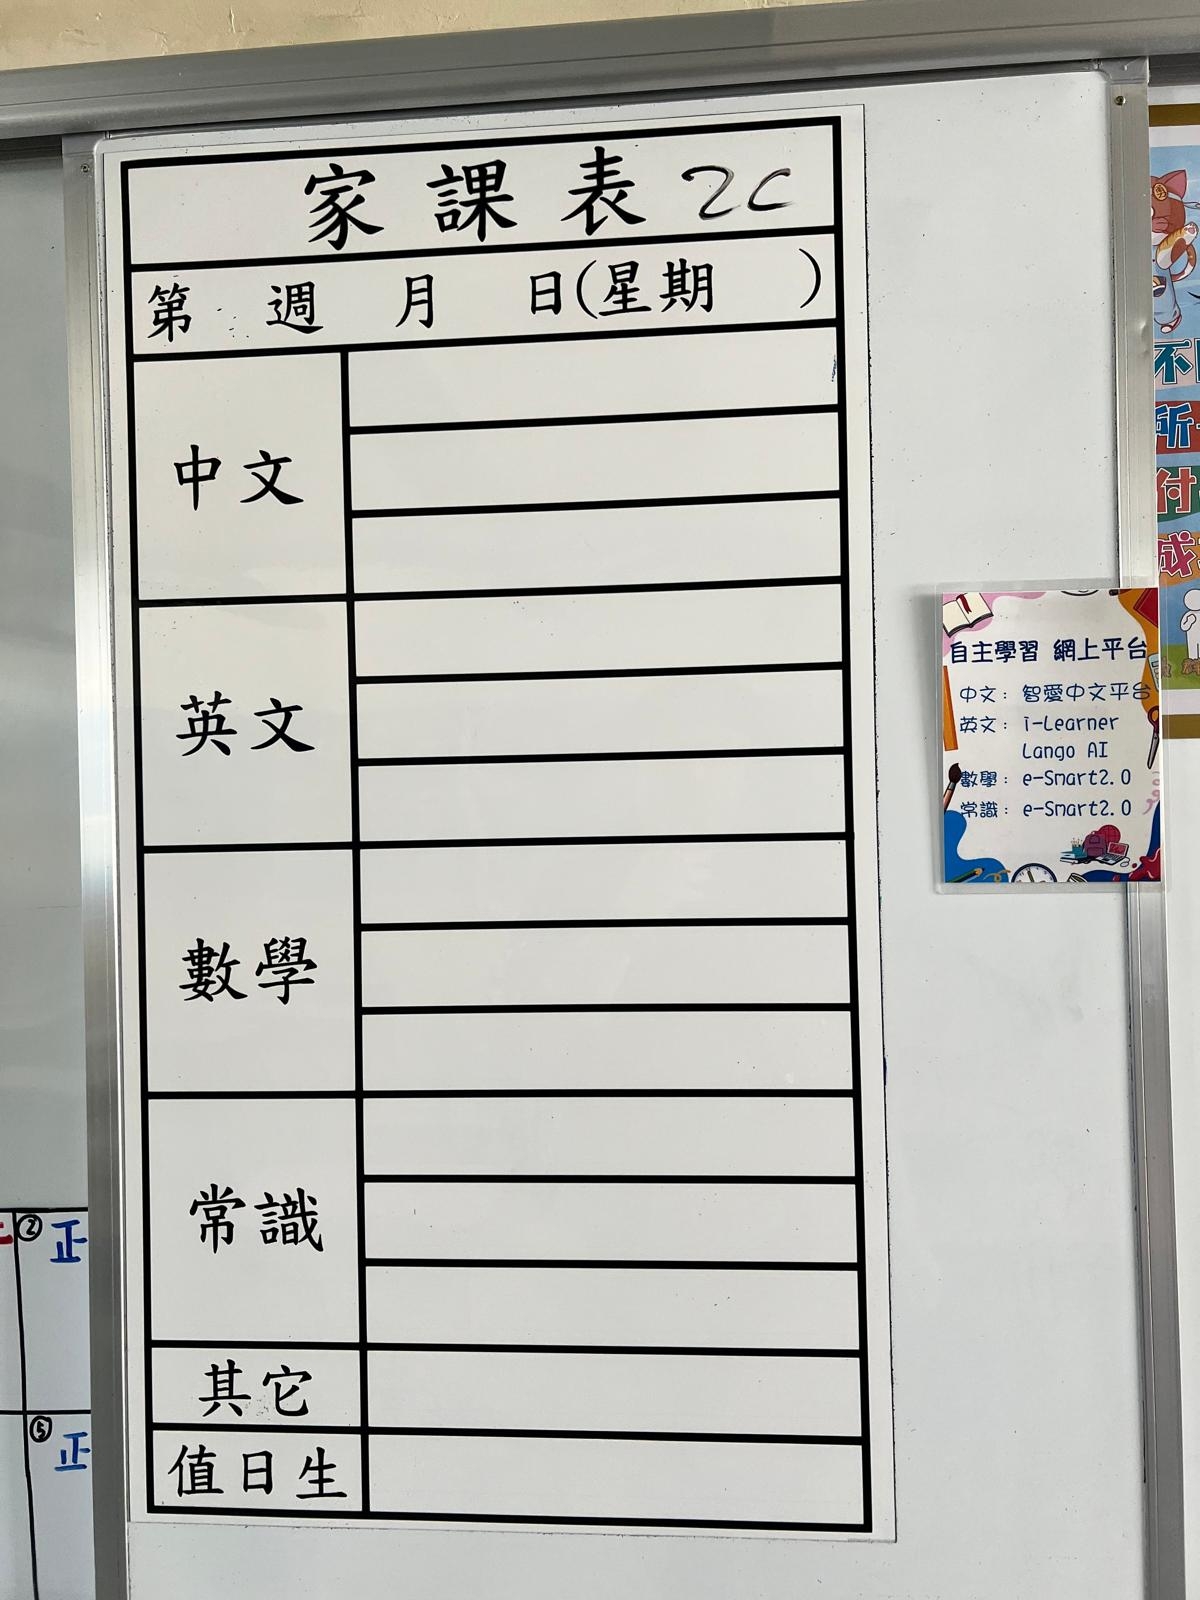 家課表 2C
第 週 月 日(星期 )
中文
英文
數學
常識
其它
值日生
自主學習 網上平台
中文: 智愛中文平台
英文: i-Learner
Lango AI
數學: e-Smart2.0
常識: e-Smart2.0
② 正
⑤ 正
不
所
付
成